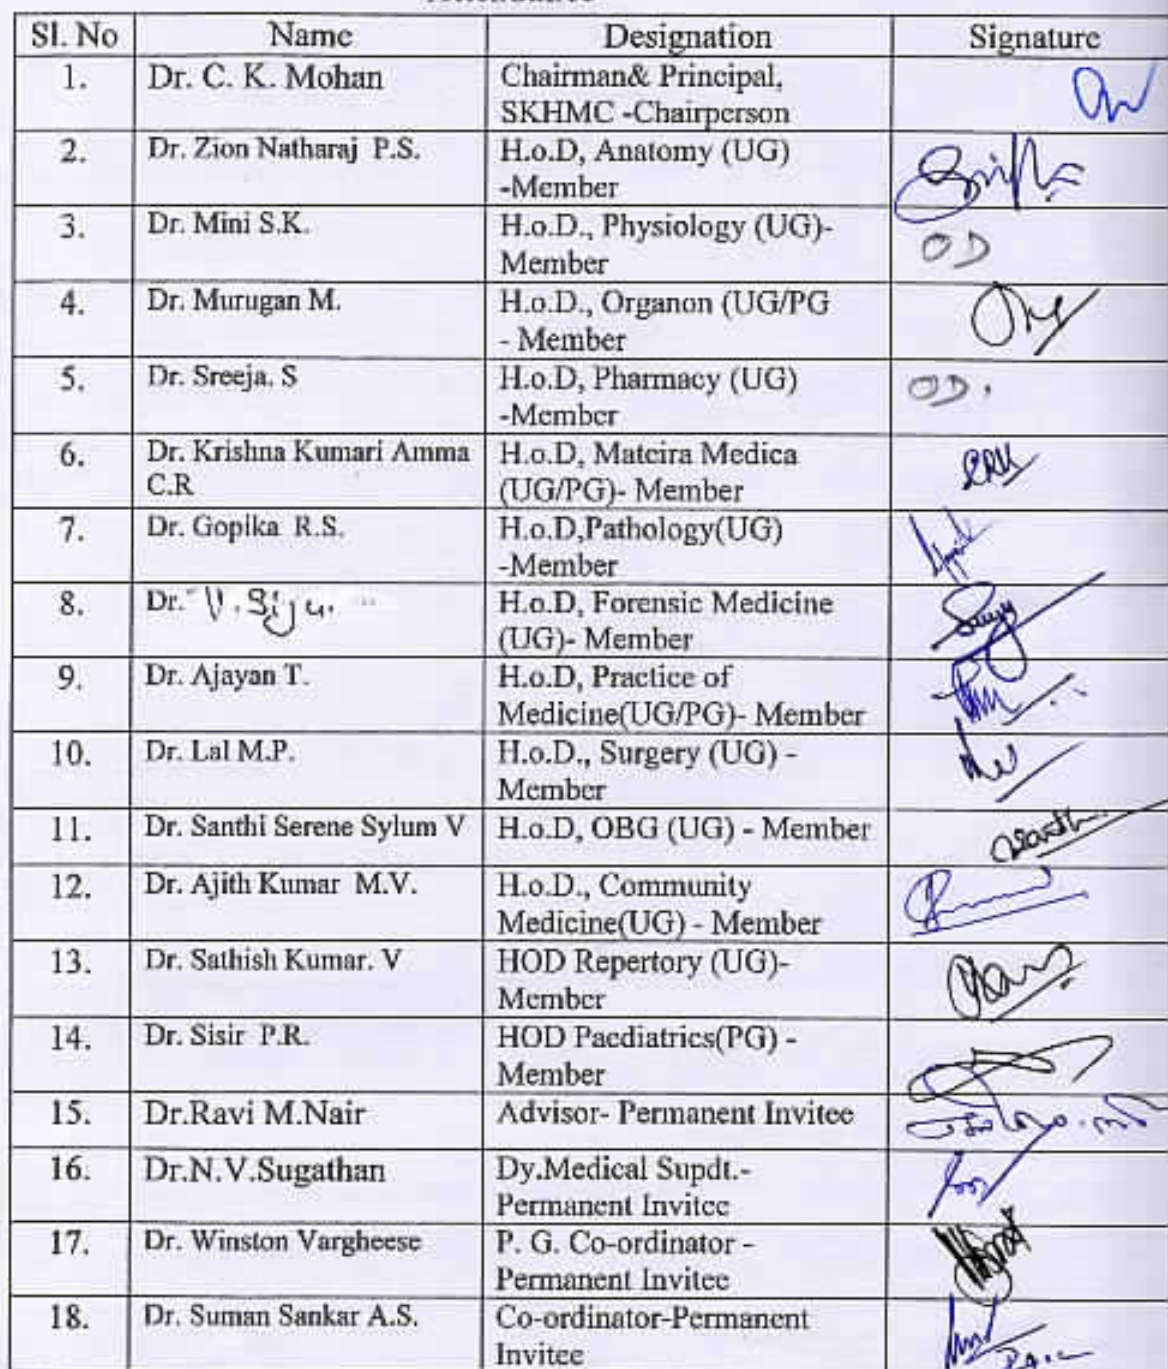 Sl. No Name Designation Signature
1. Dr. C. K. Mohan Chairman& Principal,
SKHMC -Chairperson
2. Dr. Zion Natharaj P.S. H.o.D, Anatomy (UG)
-Member
3. Dr. Mini S.K. H.o.D., Physiology (UG)- OD
Member
4. Dr. Murugan M. H.o.D., Organon (UG/PG
- Member
5. Dr. Sreeja. S H.o.D, Pharmacy (UG) OD.
-Member
6. Dr. Krishna Kumari Amma H.o.D, Mateira Medica
C.R (UG/PG)- Member
7. Dr. Gopika R.S. H.o.D,Pathology(UG)
-Member
8. Dr. V. Siju. H.o.D, Forensic Medicine
(UG)- Member
9. Dr. Ajayan T. H.o.D, Practice of
Medicine(UG/PG)- Member
10. Dr. Lal M.P. H.o.D., Surgery (UG) -
Member
11. Dr. Santhi Serene Sylum V H.o.D, OBG (UG) - Member
12. Dr. Ajith Kumar M.V. H.o.D., Community
Medicine(UG) - Member
13. Dr. Sathish Kumar. V HOD Repertory (UG)-
Member
14. Dr. Sisir P.R. HOD Paediatrics(PG) -
Member
15. Dr.Ravi M.Nair Advisor- Permanent Invitee
16. Dr.N.V.Sugathan Dy.Medical Supdt.-
Permanent Invitee
17. Dr. Winston Vargheese P. G. Co-ordinator -
Permanent Invitee
18. Dr. Suman Sankar A.S. Co-ordinator-Permanent
Invitee